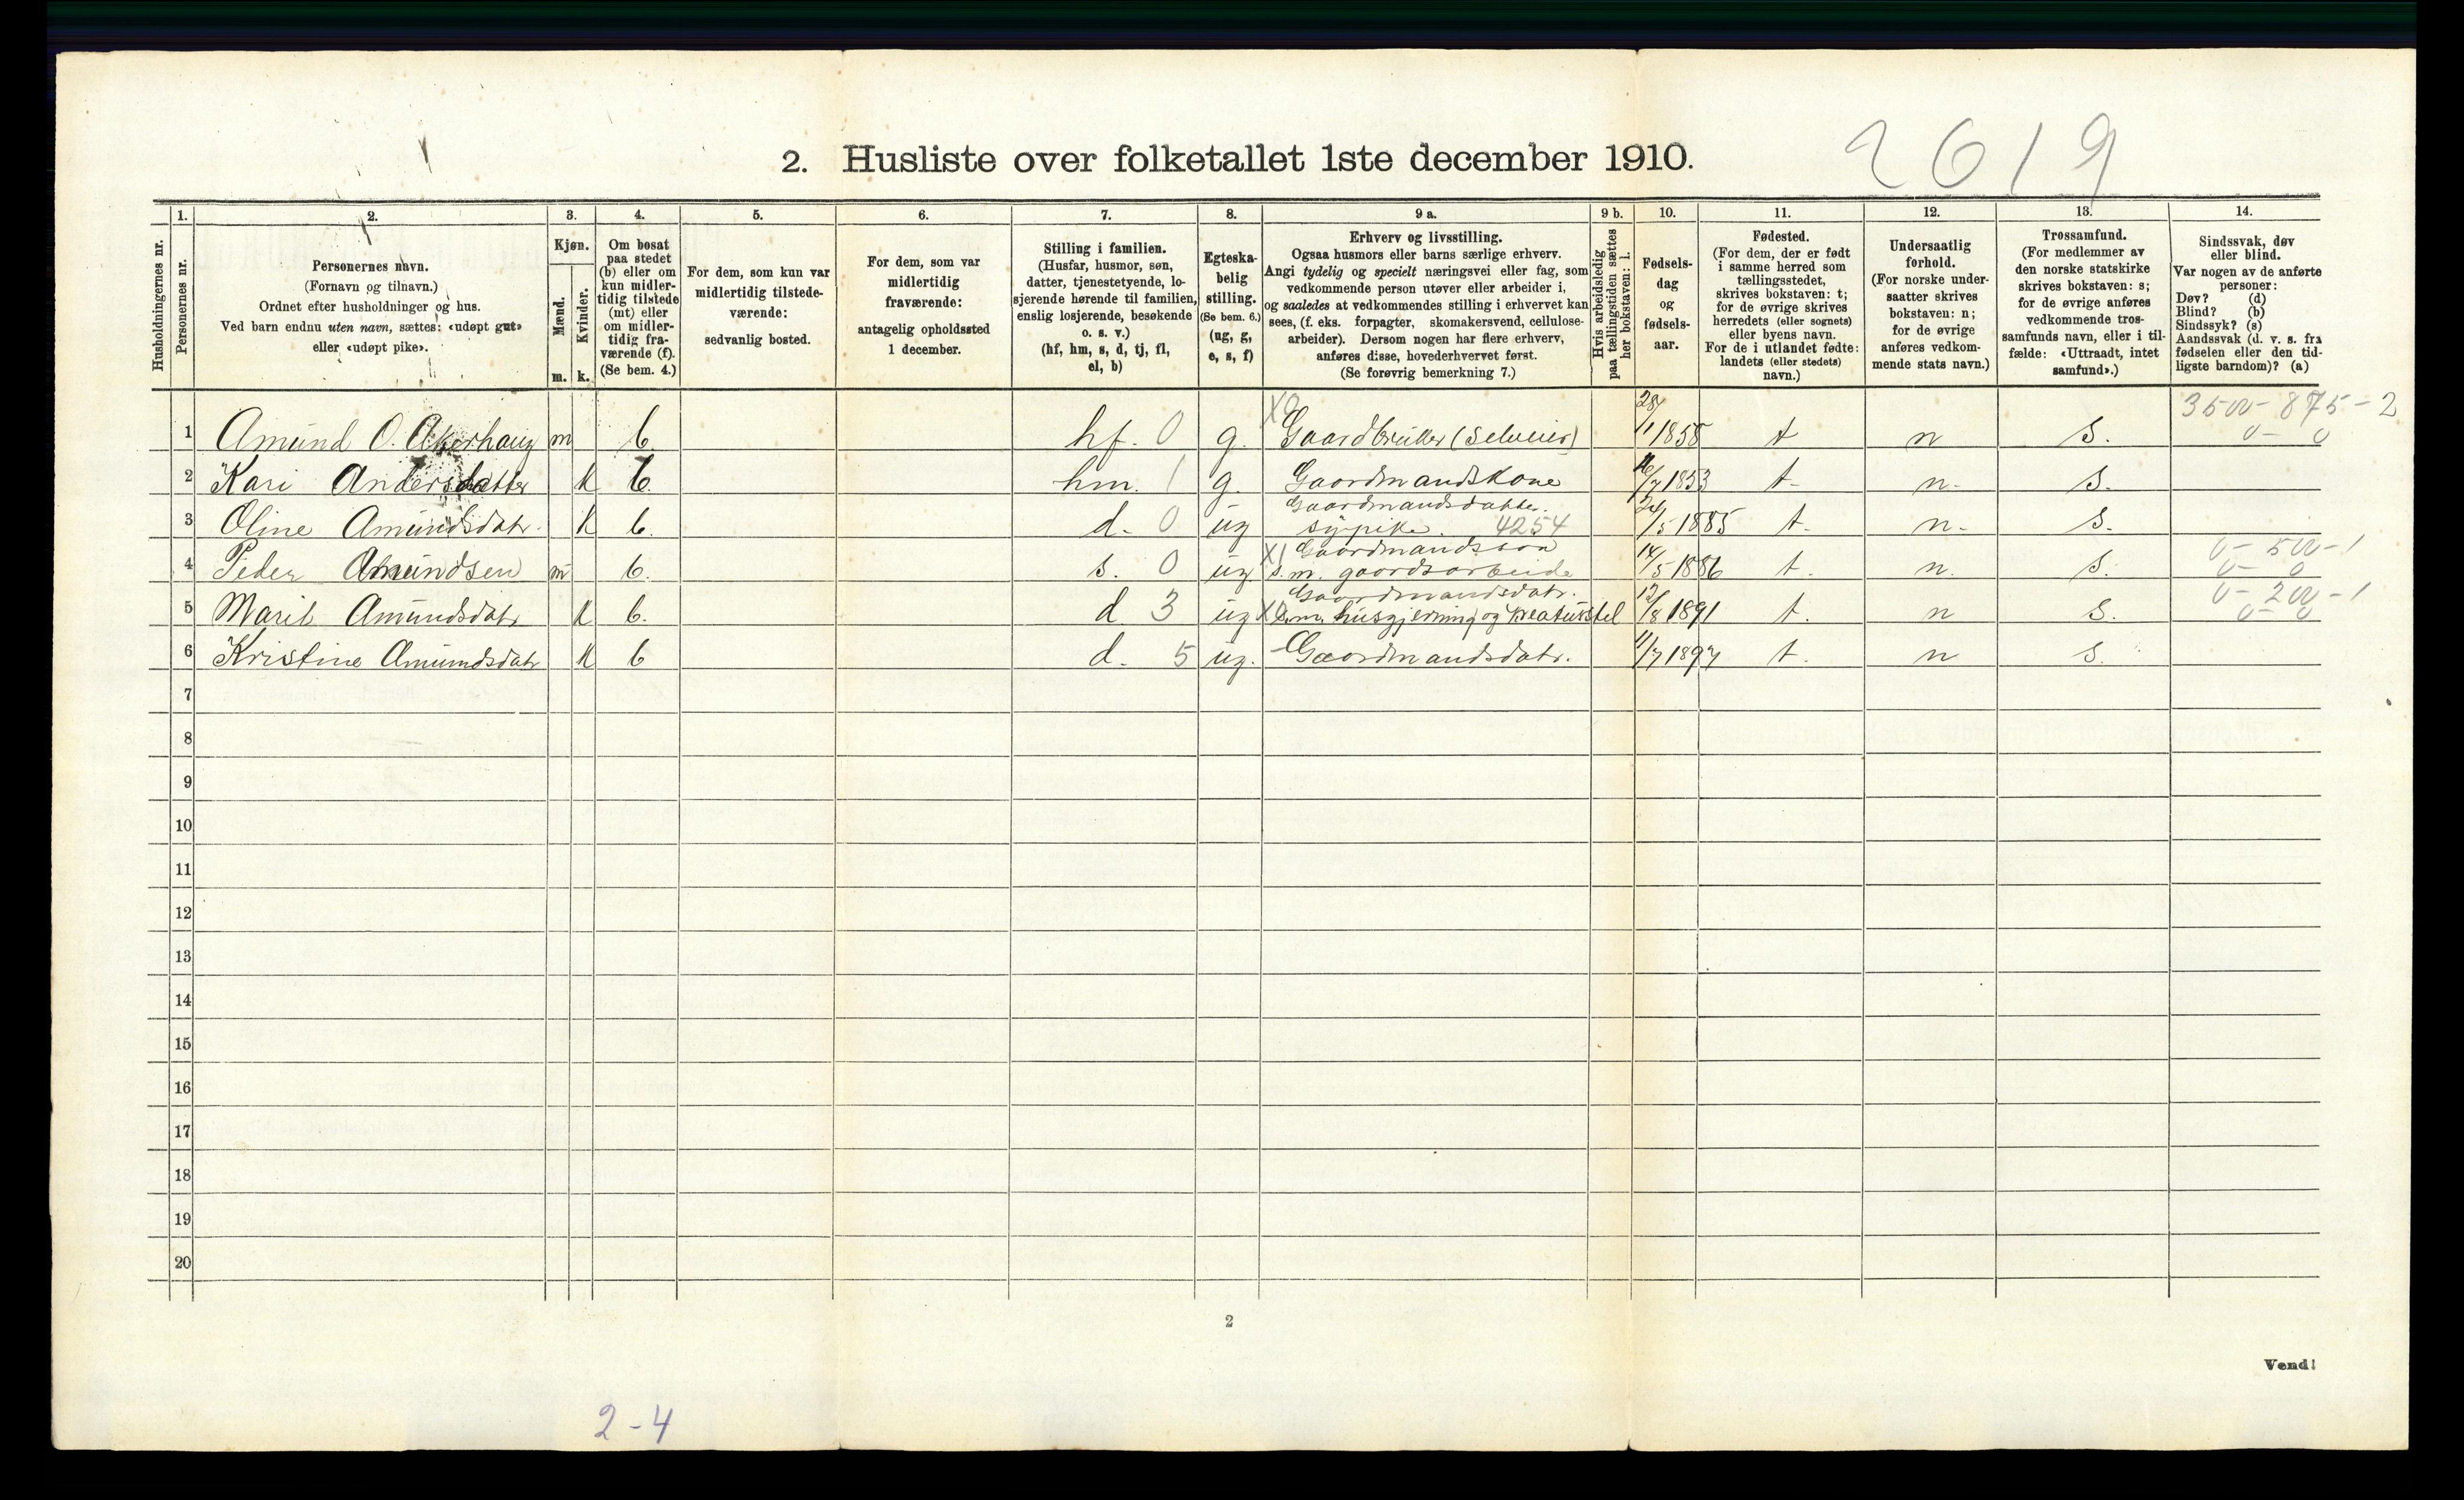 2. Husliste over folketallet 1ste december 1910.
2619
1. 2. 3. 4. 5. 6. 7. 8. 9 a. 9 b. 10. 11. 12. 13. 14.
Husholdningernes nr.
Personernes nr.
Personernes navn.
(Fornavn og tilnavn.)
Ordnet efter husholdninger og hus.
Ved barn endnu uten navn, sættes: «udøpt gut»
eller «udøpt pike».
Kjøn.
Mænd.
Kvinder.
m. k.
Om bosat
paa stedet
(b) eller om
kun midler-
tidig tilstede
(mt) eller
om midler-
tidig fra-
værende (f).
(Se bem. 4.)
For dem, som kun var
midlertidig tilstede-
værende:
sedvanlig bosted.
For dem, som var
midlertidig
fraværende:
antagelig opholdssted
1 december.
Stilling i familien.
(Husfar, husmor, søn,
datter, tjenestetyende, lo-
sjerende hørende til familien,
enslig losjerende, besøkende
o. s. v.)
(hf, hm, s, d, tj, fl,
el, b)
Egteska-
belig
stilling.
(Se bem. 6.)
(ug, g,
e, s, f)
Erhverv og livsstilling.
Ogsaa husmors eller barns særlige erhverv.
Angi tydelig og specielt næringsvei eller fag, som
vedkommende person utøver eller arbeider i,
og saaledes at vedkommendes stilling i erhvervet kan
sees, (f. eks. forpagter, skomakersvend, cellulose-
arbeider). Dersom nogen har flere erhverv,
anføres disse, hovederhvervet først.
(Se forøvrig bemerkning 7.)
Hvis arbeidsledig
paa tællingstiden sættes
her bokstaven: l.
Fødsels-
dag
og
fødsels-
aar.
Fødested.
(For dem, der er født
i samme herred som
tællingsstedet,
skrives bokstaven: t;
for de øvrige skrives
herredets (eller sognets)
eller byens navn.
For de i utlandet fødte:
landets (eller stedets)
navn.)
Undersaatlig
forhold.
(For norske under-
saatter skrives
bokstaven: n;
for de øvrige
anføres vedkom-
mende stats navn.)
Trossamfund.
(For medlemmer av
den norske statskirke
skrives bokstaven: s;
for de øvrige anføres
vedkommende tros-
samfunds navn, eller i til-
fælde: «Uttraadt, intet
samfund».)
Sindssvak, døv
eller blind.
Var nogen av de anførte
personer:
Døv? (d)
Blind? (b)
Sindssyk? (s)
Aandssvak (d. v. s. fra
fødselen eller den tid-
ligste barndom)? (a)
3500 - 875 - 2
1 Amund O. Akerhaug m b hf. 0 g. Gaardbruker (Selveier) 28/1 1858 t n s. 0 - 0
2 Kari Andersdatter k b. hm. 1 g. Gaardmandskone /7 1853 t- n- s.
Gaardmandsdatter.
3 Oline Amundsdatr. k b. d. 0 ug sypike. 4254 24/5 1885 t. n- s.
Gaardmandssøn 0 - 500 - 1
4 Peder Amundsen m b. s. 0 ug. X1 s.m. gaardsarbeide 14/5 1886 t. n. s. 0 - 0
Gaardmandsdatr. 0 - 200 - 1
5 Marit Amundsdatr k b. d 3 ug s.m. husgjerning og kreaturstel 12/8 1891 t. n s. 0 - 0
6 Kristine Amundsdatr k b d. 5 ug. Gaardmandsdatr. 11/7 1897 t. n s.
7
8
9
10
11
12
13
14
15
16
17
18
19
20
2
Vend!
2-4